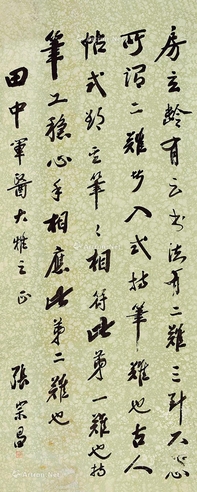 房玄龄有云书法有二难三到不忘
所谓二难者入式持笔难也古人
帖式斯立笔之相符此第一难也持
笔工稳心手相应此第二难也
田中军医大雅之正
张宗昌